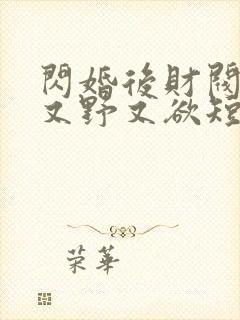 閃婚後財閥
又野又欲短
荣華